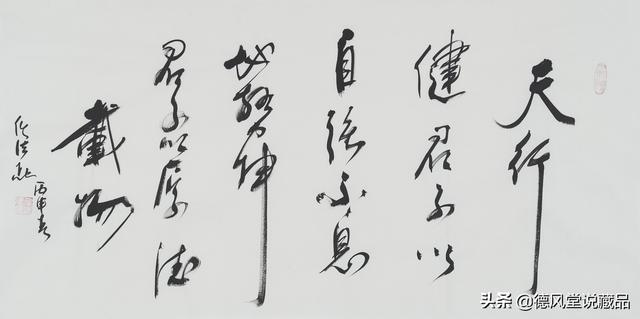 天行
健君子以
自強不息
地勢坤
君子以厚德
載物
丙申春
头条 @德风堂说藏品